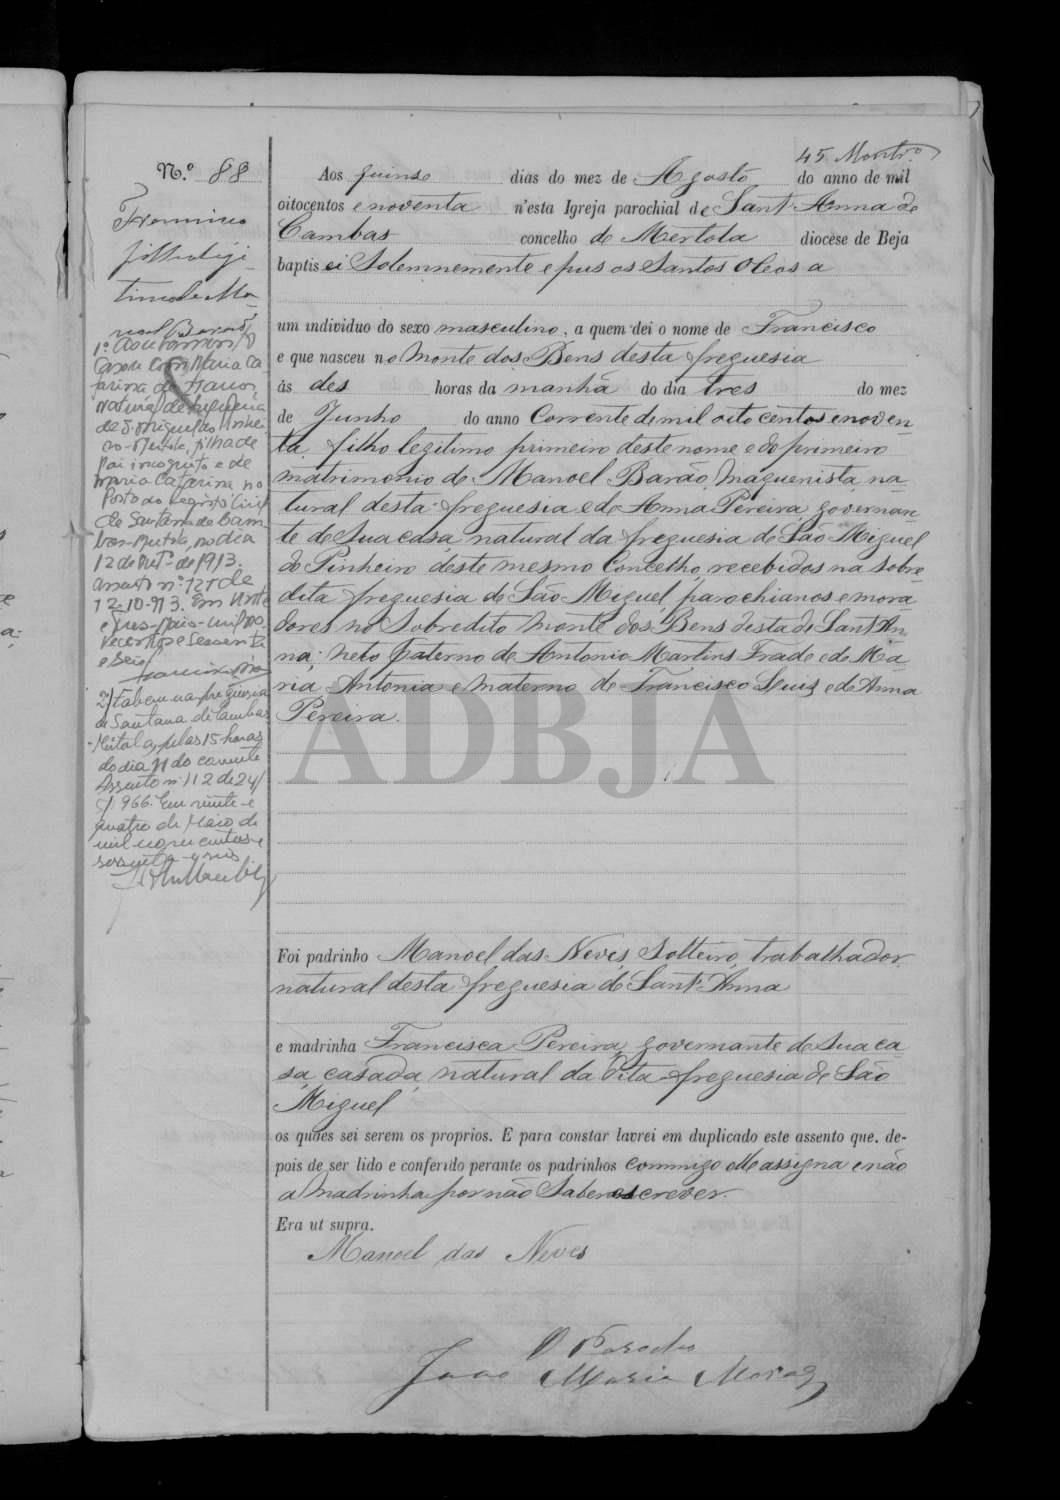 45 Montr.º
N.º 88
Francisco
filho legi-
timo de Ma-
noel Barão
1.º Ao
Casou com Maria Ca
tarina
natural da freguesia
de S. Miguel do Pinhei
ro-Mertola, filha de
Pai incognito e de
Maria Catarina no
Posto do Registo Civil
de Santana de Cam
bas-Mertola, no dia
12 de Outº de 1913.
assento nº 121 de
12-10-913. Em vinte
e tres-Maio-mil no
vecentos e sessenta
e seis
2º Faleceu na freguesia
de Santana de Cambas
-Mértola, pelas 15 horas
do dia do corrente
Assento nº 112 de 24/
5/966. Em vinte e
quatro de Maio de
mil novecentos e
sessenta e seis
Aos quinse dias do mez de Agosto do anno de mil
oitocentos e noventa n'esta Igreja parochial de Sant'Anna de
Cambas concelho de Mertola diocese de Beja
baptisei Solemnemente e pus os Santos Oleos a
um individuo do sexo masculino, a quem dei o nome de Francisco
e que nasceu no Monte dos Bens desta freguesia
ás des horas da manhã do dia tres do mez
de Junho do anno Corrente de mil oito centos e noven-
ta, filho legitimo primeiro deste nome e do primeiro
matrimonio de Manoel Barão, Maquenista, na-
tural desta freguesia e de Anna Pereira, governan-
te de Sua casa, natural da freguesia de São Miguel
do Pinheiro deste mesmo Concelho, recebidos na Sobre-
dita freguesia de São Miguel, parochianos e mora-
dores no Sobredito Monte dos Bens desta de Sant'An-
na; Neto paterno de Antonio Martins Frade e de Ma-
ria Antonia e materno de Francisco Luiz e de Anna
Pereira.
ADBJA
Foi padrinho Manoel das Neves, Solteiro, trabalhador
natural desta freguesia de Sant'Anna
e madrinha Francisca Pereira, governante de Sua ca-
sa, casada, natural da dita freguesia de São
Miguel
os quaes sei serem os proprios. E para constar lavrei em duplicado este assento que, de-
pois de ser lido e conferido perante os padrinhos commigo elle assigna e não
a Madrinha por não Saber escrever.
Era ut supra.
Manoel das Neves
O Parocho
João Maria Moraes